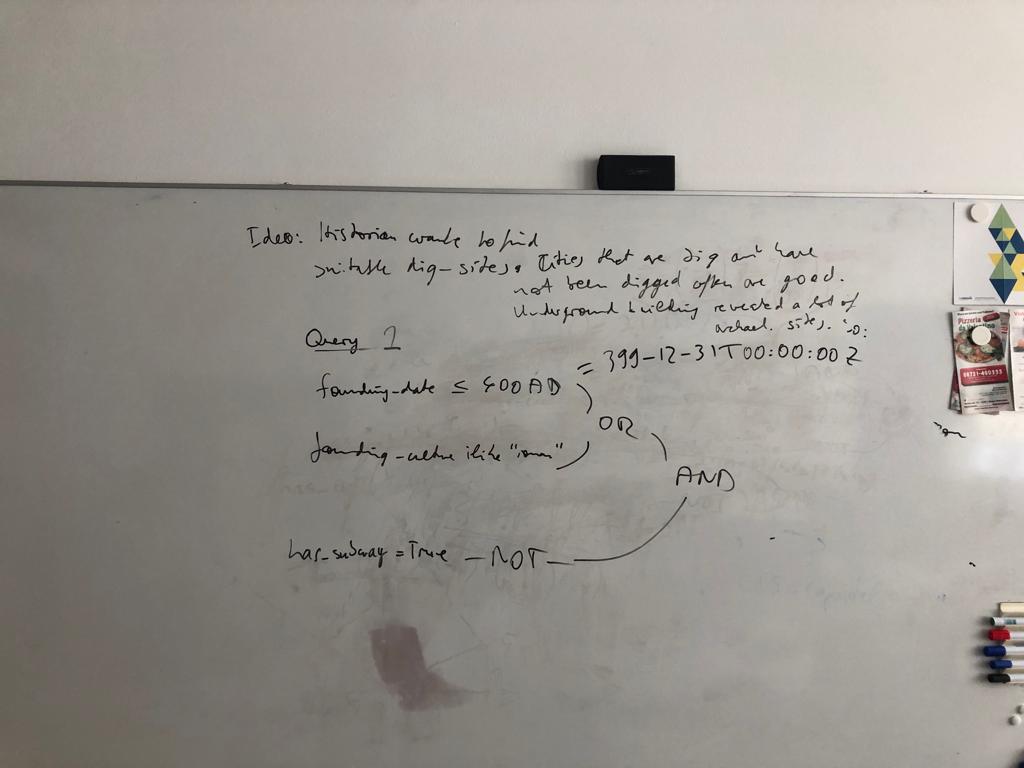 Idea: Historian wants to find
suitable dig-sites. Cities that are big and have
not been digged often are good.
Underground building revealed a lot of
archaeol. sites.
Query 1
= 399-12-31T00:00:00Z
founding-date ≤ 400AD
OR
founding-culture ilike "roman"
AND
has_subway = True – NOT
Pizzeria